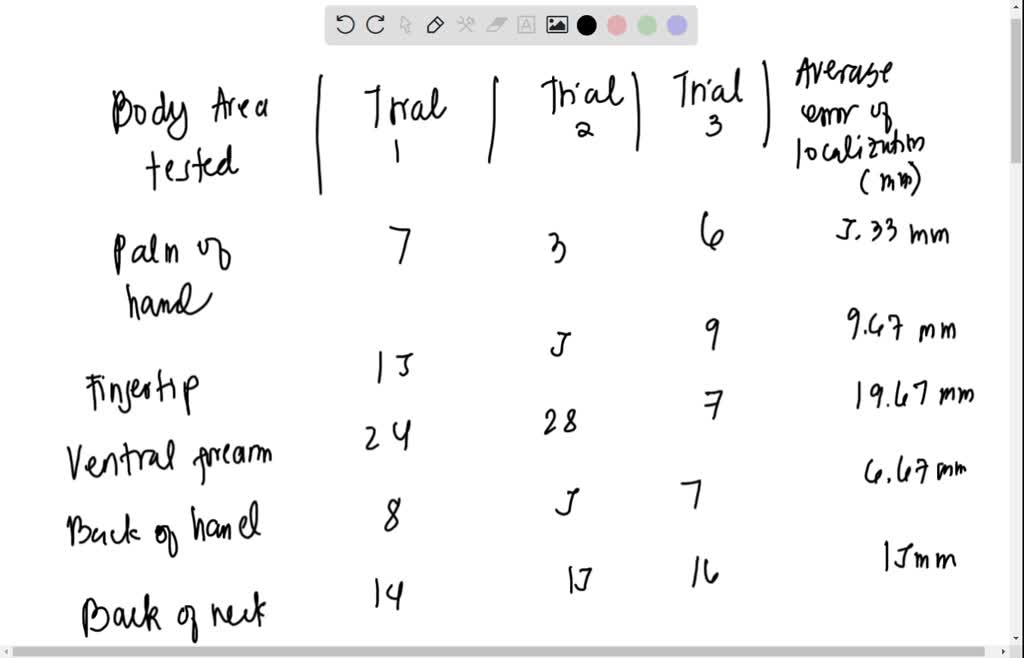 Body Area tested | Trial 1 | Trial 2 | Trial 3 | Average error of localization (mm)
Palm of hand 7 3 6 5.33 mm
Fingertip 15 5 9 9.67 mm
Ventral forearm 24 28 7 19.67 mm
Back of hand 8 5 7 6.67 mm
Back of neck 14 15 16 15 mm